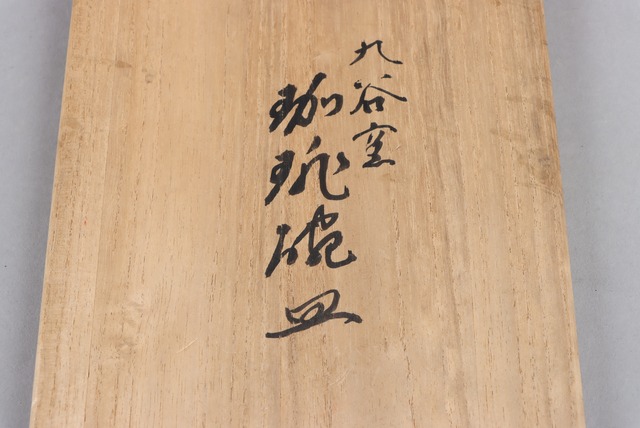 九谷窯
珈琲碗皿